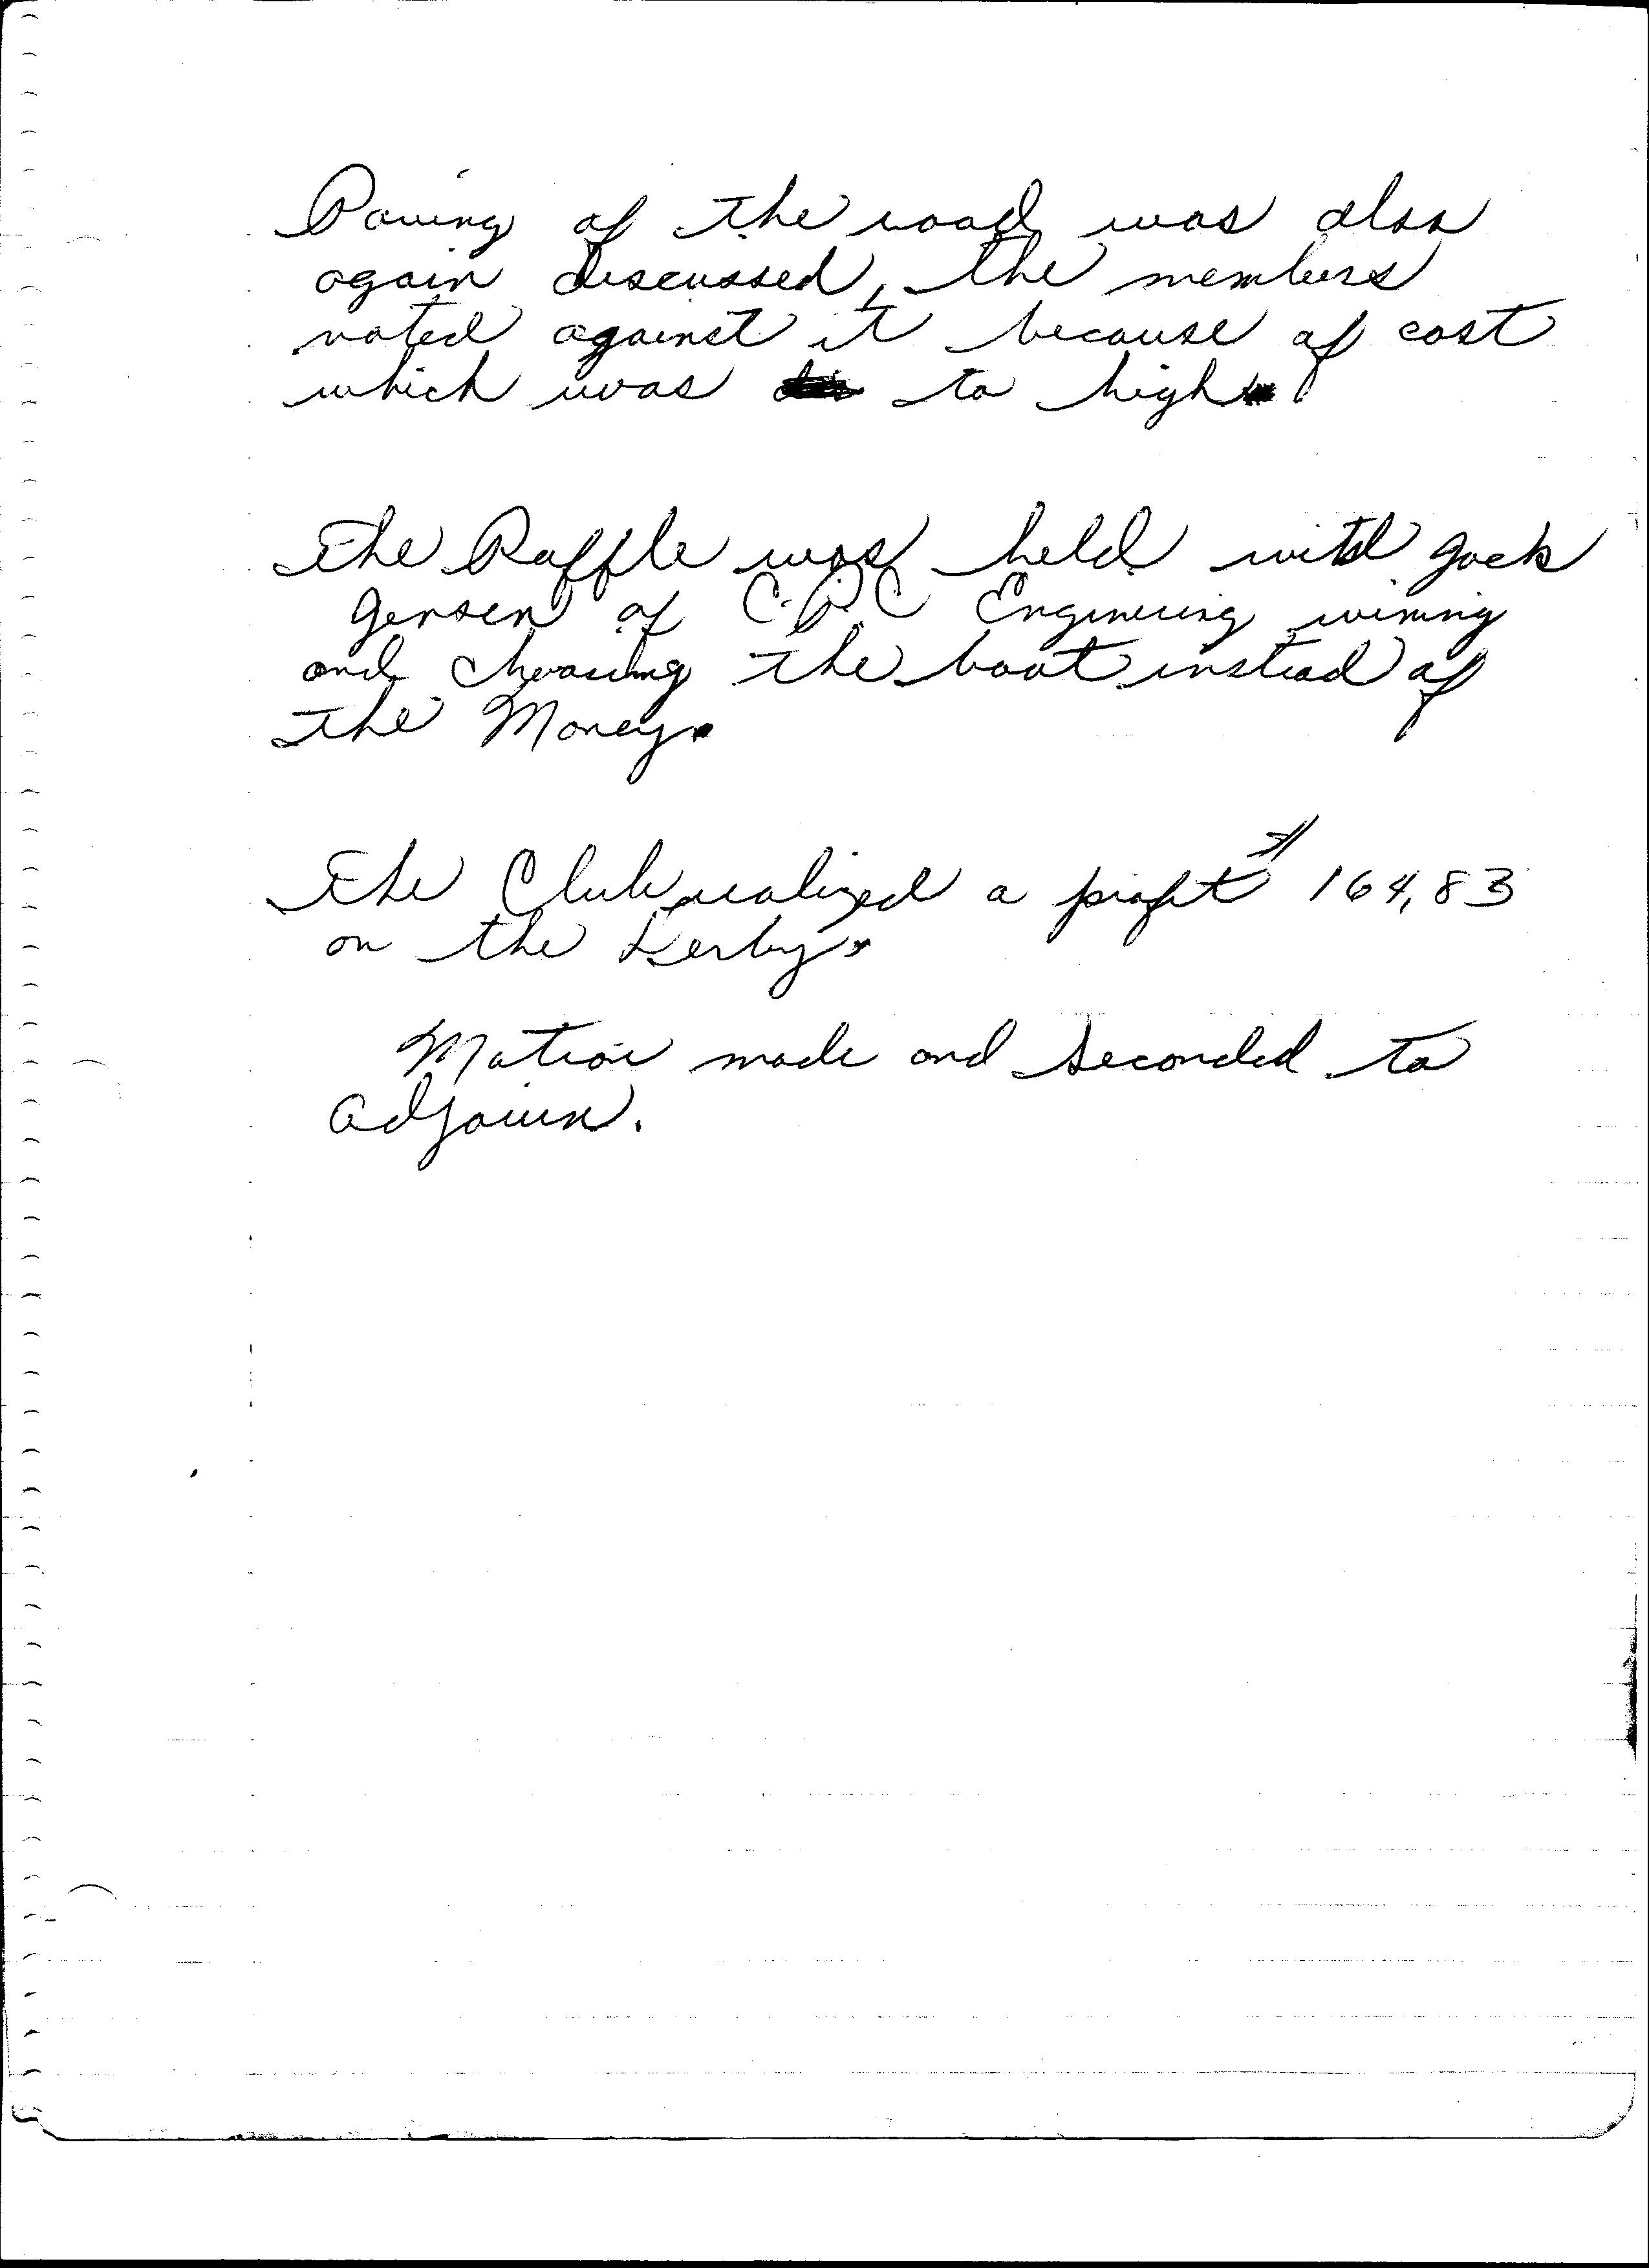 Paving of the road was also
again discussed, the members
voted against it because of cost
which was to high.
The Raffle was held with Jack
Gensen of C.P.C Engineering wining
and choosing the boat instead of
the Money.
The Club realized a profit 164,83
on the Derby.
Motion made and seconded to
adjourn.